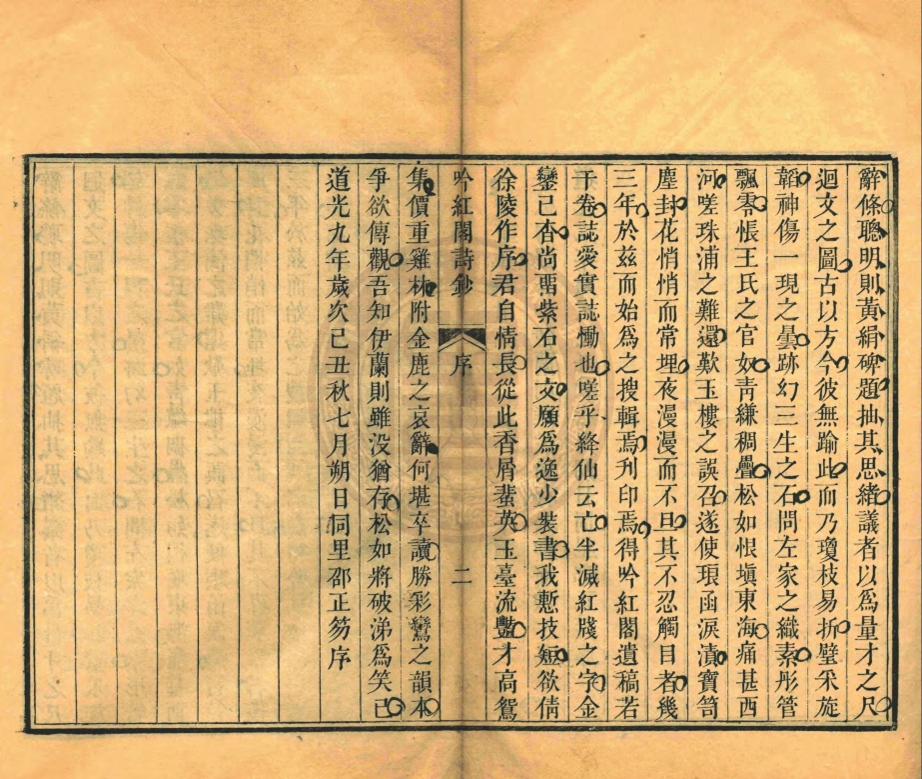 辭條聰明則黃絹碑題抽其思緒議者以爲量才之尺
迴文之圖古以方今彼無踰此而乃瓊枝易折璧采旋
韜神傷一現之曇跡幻三生之石問左家之織素彤管
飄零悵王氏之官奴靑縑稠疊松如恨塡東海痛甚西
河嗟珠浦之難還歎玉樓之誤召遂使琅函淚漬寶笥
塵封花悄悄而常埋夜漫漫而不旦其不忍觸目者幾
三年於兹而始爲之搜輯焉刋印焉得吟紅閣遺稿若
干卷誌愛實誌慟也嗟乎絳仙云亡半滅紅牋之字金
鑾已杳尚畱紫石之文願爲逸少裝書我慙技短欲倩
徐陵作序君自情長從此香屑蜚英玉臺流豔才高鴛
吟紅閣詩鈔 序 二
集價重雞林附金鹿之哀辭何堪卒讀勝彩鸞之韻本
爭欲傳觀吾知伊蘭則雖没猶存松如將破涕爲笑已
道光九年歲次己丑秋七月朔日同里邵正笏序